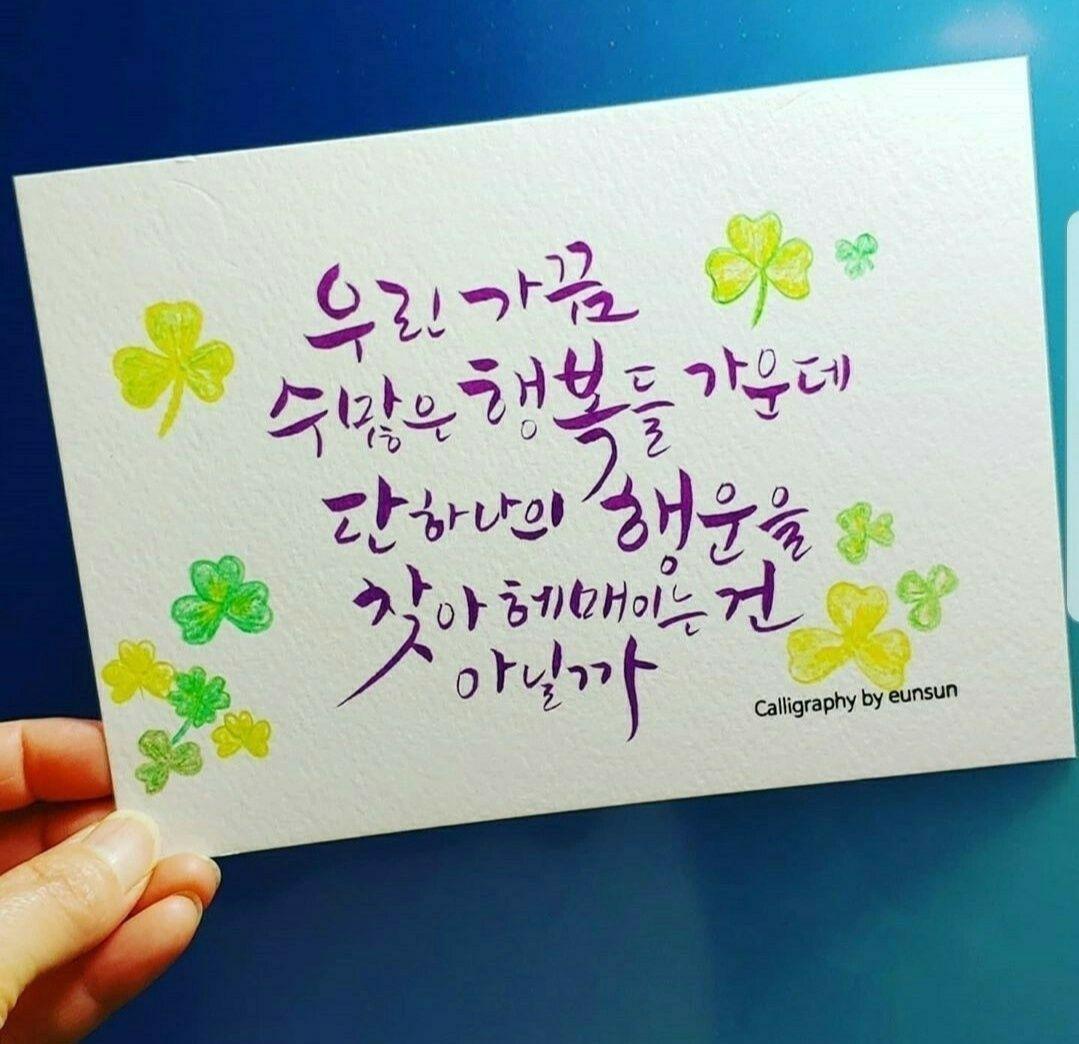 우린 가끔
수많은 행복들 가운데
단 하나의 행운을
찾아 헤매이는 건
아닐까
Calligraphy by eunsun